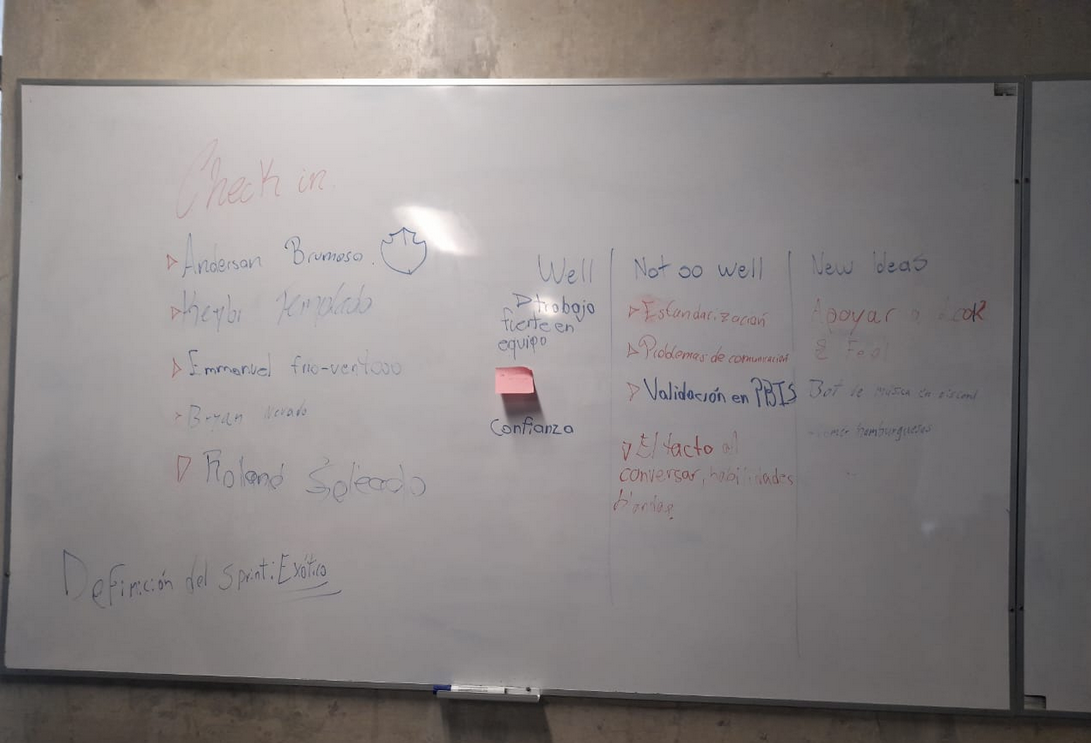 Check in
Anderson Brumoso.
Templado
Emmanuel frio-ventoso
Bryan nevado
Roland Soleado
Definición del Sprint: Exótico
Well
trabajo
fuerte en
equipo
Confianza
Not so well
Estandarización
Problemas de comunicación
Validación en PBIS
El tacto al
conversar, habilidades
blandas.
New Ideas
Apoyar a Look
& Feel
Bot de música en discord
hamburguesas